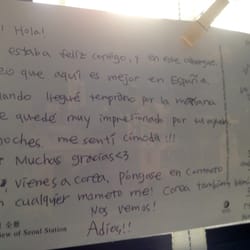 ¡Hola!
estaba feliz contigo, y en este albergue.
que aquí es mejor en España
llegué temprano por la mañana
quedé muy impresionado por tu
noches. me sentí cómoda!!!
Muchas gracias<3
vienes a corea, póngase en contacto
cualquier mameto me! Corea también
Nos vemos!
Adios!!
view of Seoul Station